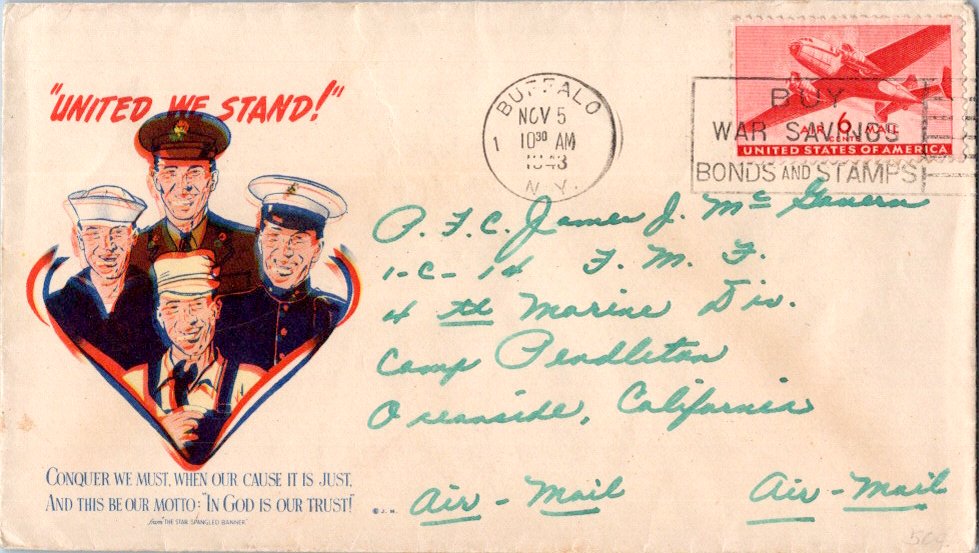 "UNITED WE STAND!"
BUFFALO
NOV 5
1 10 30 AM
1943
N.Y.
BUY
WAR SAVINGS
BONDS AND STAMPS
AIR 6 MAIL
CENTS
UNITED STATES OF AMERICA
P.F.C. James J. McGavern
1-C-14 F.M.F.
4th Marine Div.
Camp Pendleton
Oceanside, California
Air-Mail Air-Mail
CONQUER WE MUST, WHEN OUR CAUSE IT IS JUST,
AND THIS BE OUR MOTTO: "IN GOD IS OUR TRUST!"
from "THE STAR SPANGLED BANNER"
© J.M.